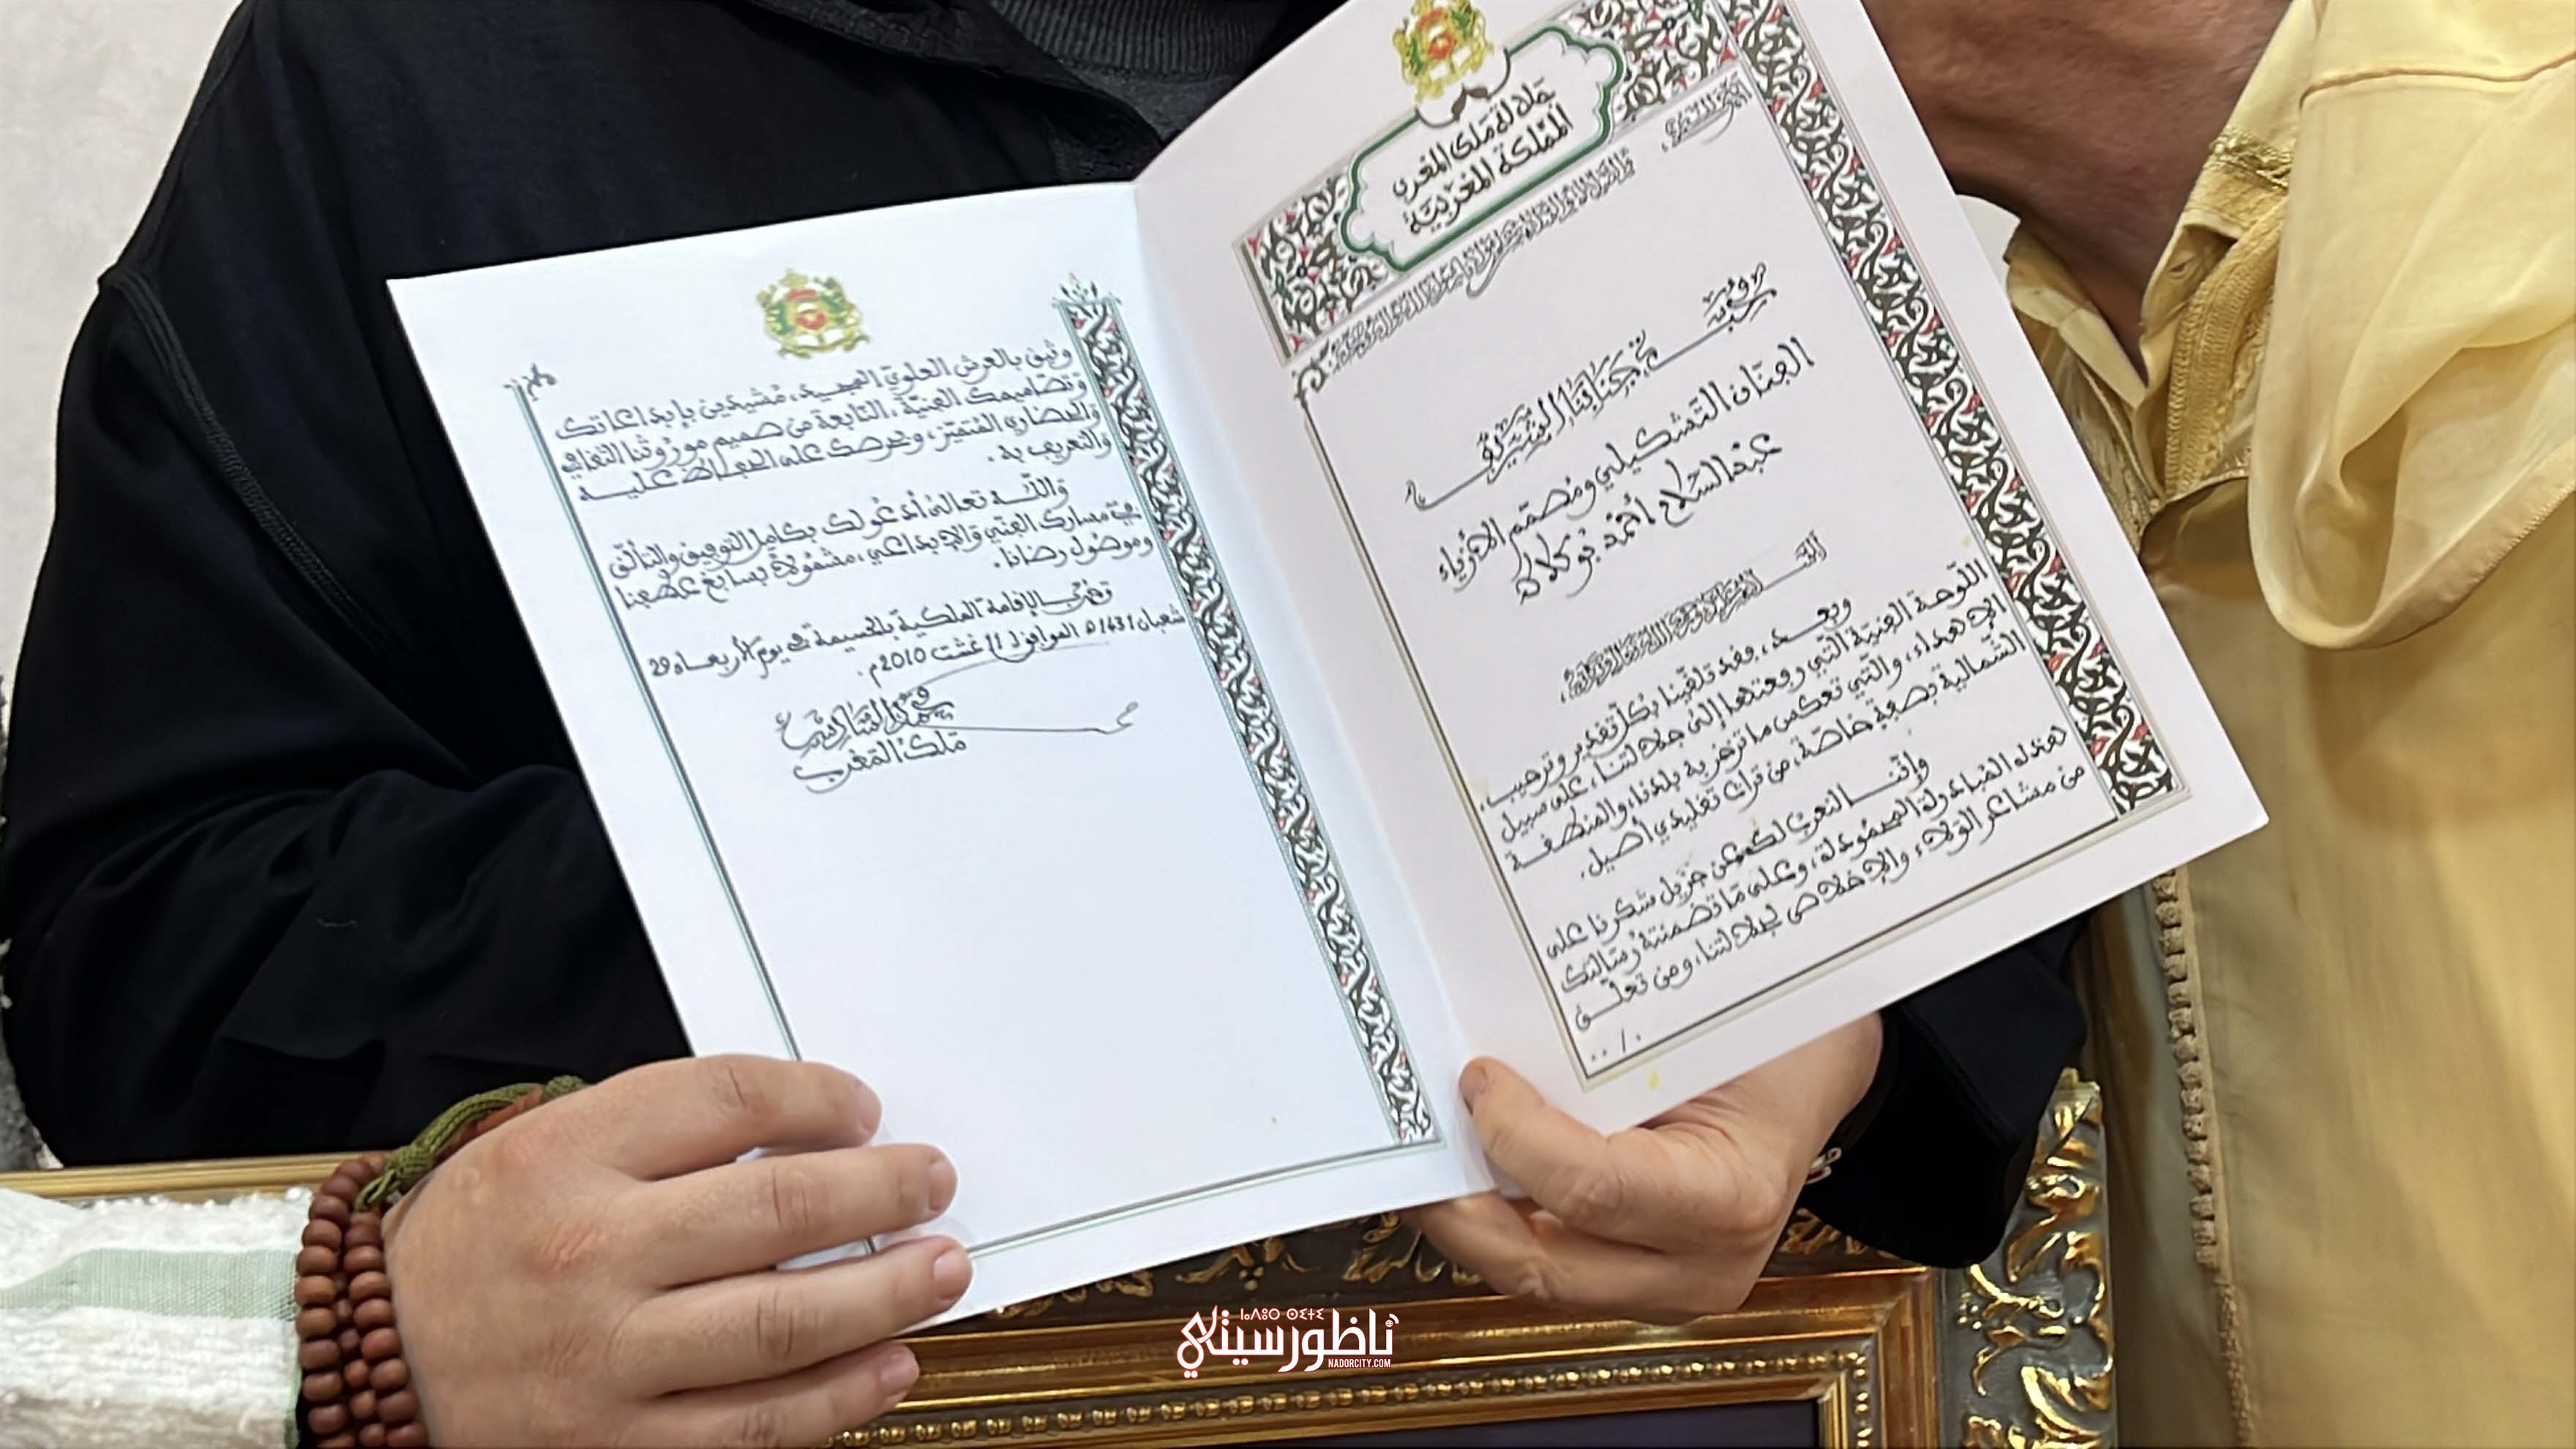 جلالة ملك المغرب
المملكة المغربية
الحمد لله وحده،
والصلاة والسلام على مولانا رسول الله وآله وصحبه
محبنا الشريف
الفنان التشكيلي ومصمم الأزياء
عبد السلام أحمد بوكلاك
وبعد، فقد تلقينا بكل تقدير وترحيب،
اللوحة الفنية التي رفعتها إلى جلالتنا، على سبيل
الإهداء، والتي تعكس ما تزخر به بلادنا، والمنطقة
الشمالية بصفة خاصة، من تراث تقليدي أصيل.
وإننا لنعرب لك عن جزيل شكرنا على
هذه المبادرة المحمودة، وعلى ما تضمنته رسالتك
من مشاعر الولاء والإخلاص لجلالتنا، ومن تعلق
../.
وثيق بالعرش العلوي المجيد، مشيدين بإبداعاتك
وتصاميمك الفنية، النابعة من صميم موروثنا الثقافي
والحضاري المتميز، وحرصك على الحفاظ عليه
والتعريف به.
والله تعالى أدعو لك بكامل التوفيق والتألق
في مسارك الفني والإبداعي، مشمولا بسابغ عطفنا
وموصول رضانا.
وحرر بالإقامة الملكية بالحسيمة في يوم الأربعاء 29
شعبان 1431ه الموافق ل 11 غشت 2010م.
محمد السادس
ملك المغرب
ⵏⴰⴷⵓⵔ ⵙⵉⵜⵉ
ناظورسيتي
NADORCITY.COM